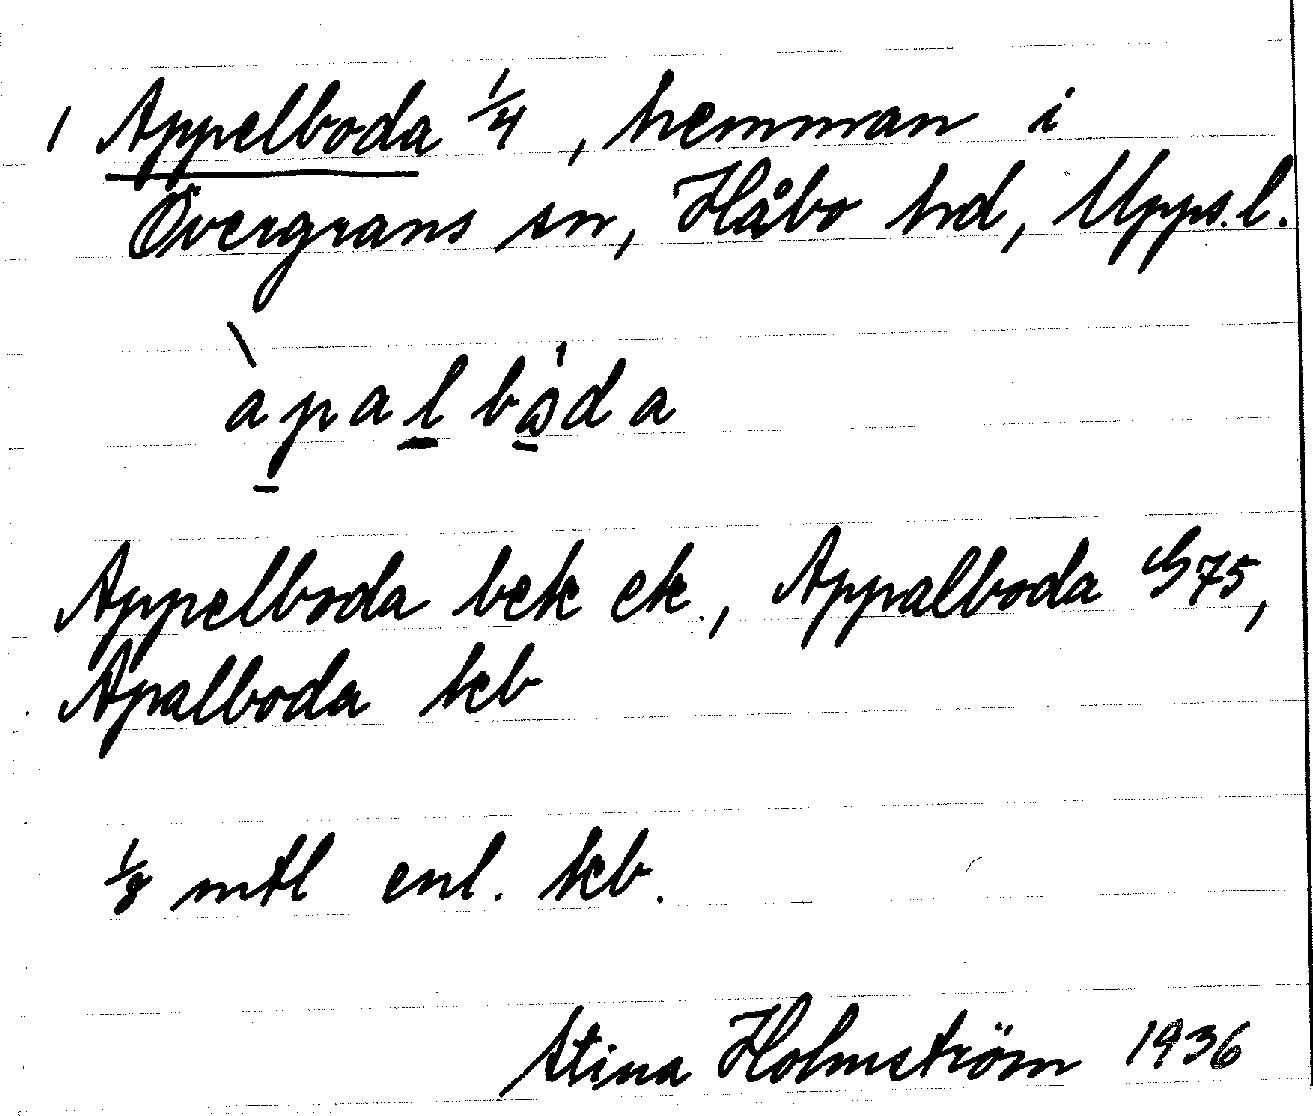 1 Appelboda 1/4, hemman i
Övergrans sn, Håbo hd, Upps. l.
àpalbåda
Appelboda bek ek., Appalboda G75,
Apalboda kb
1/8 mtl enl. kb.
Stina Holmström 1936